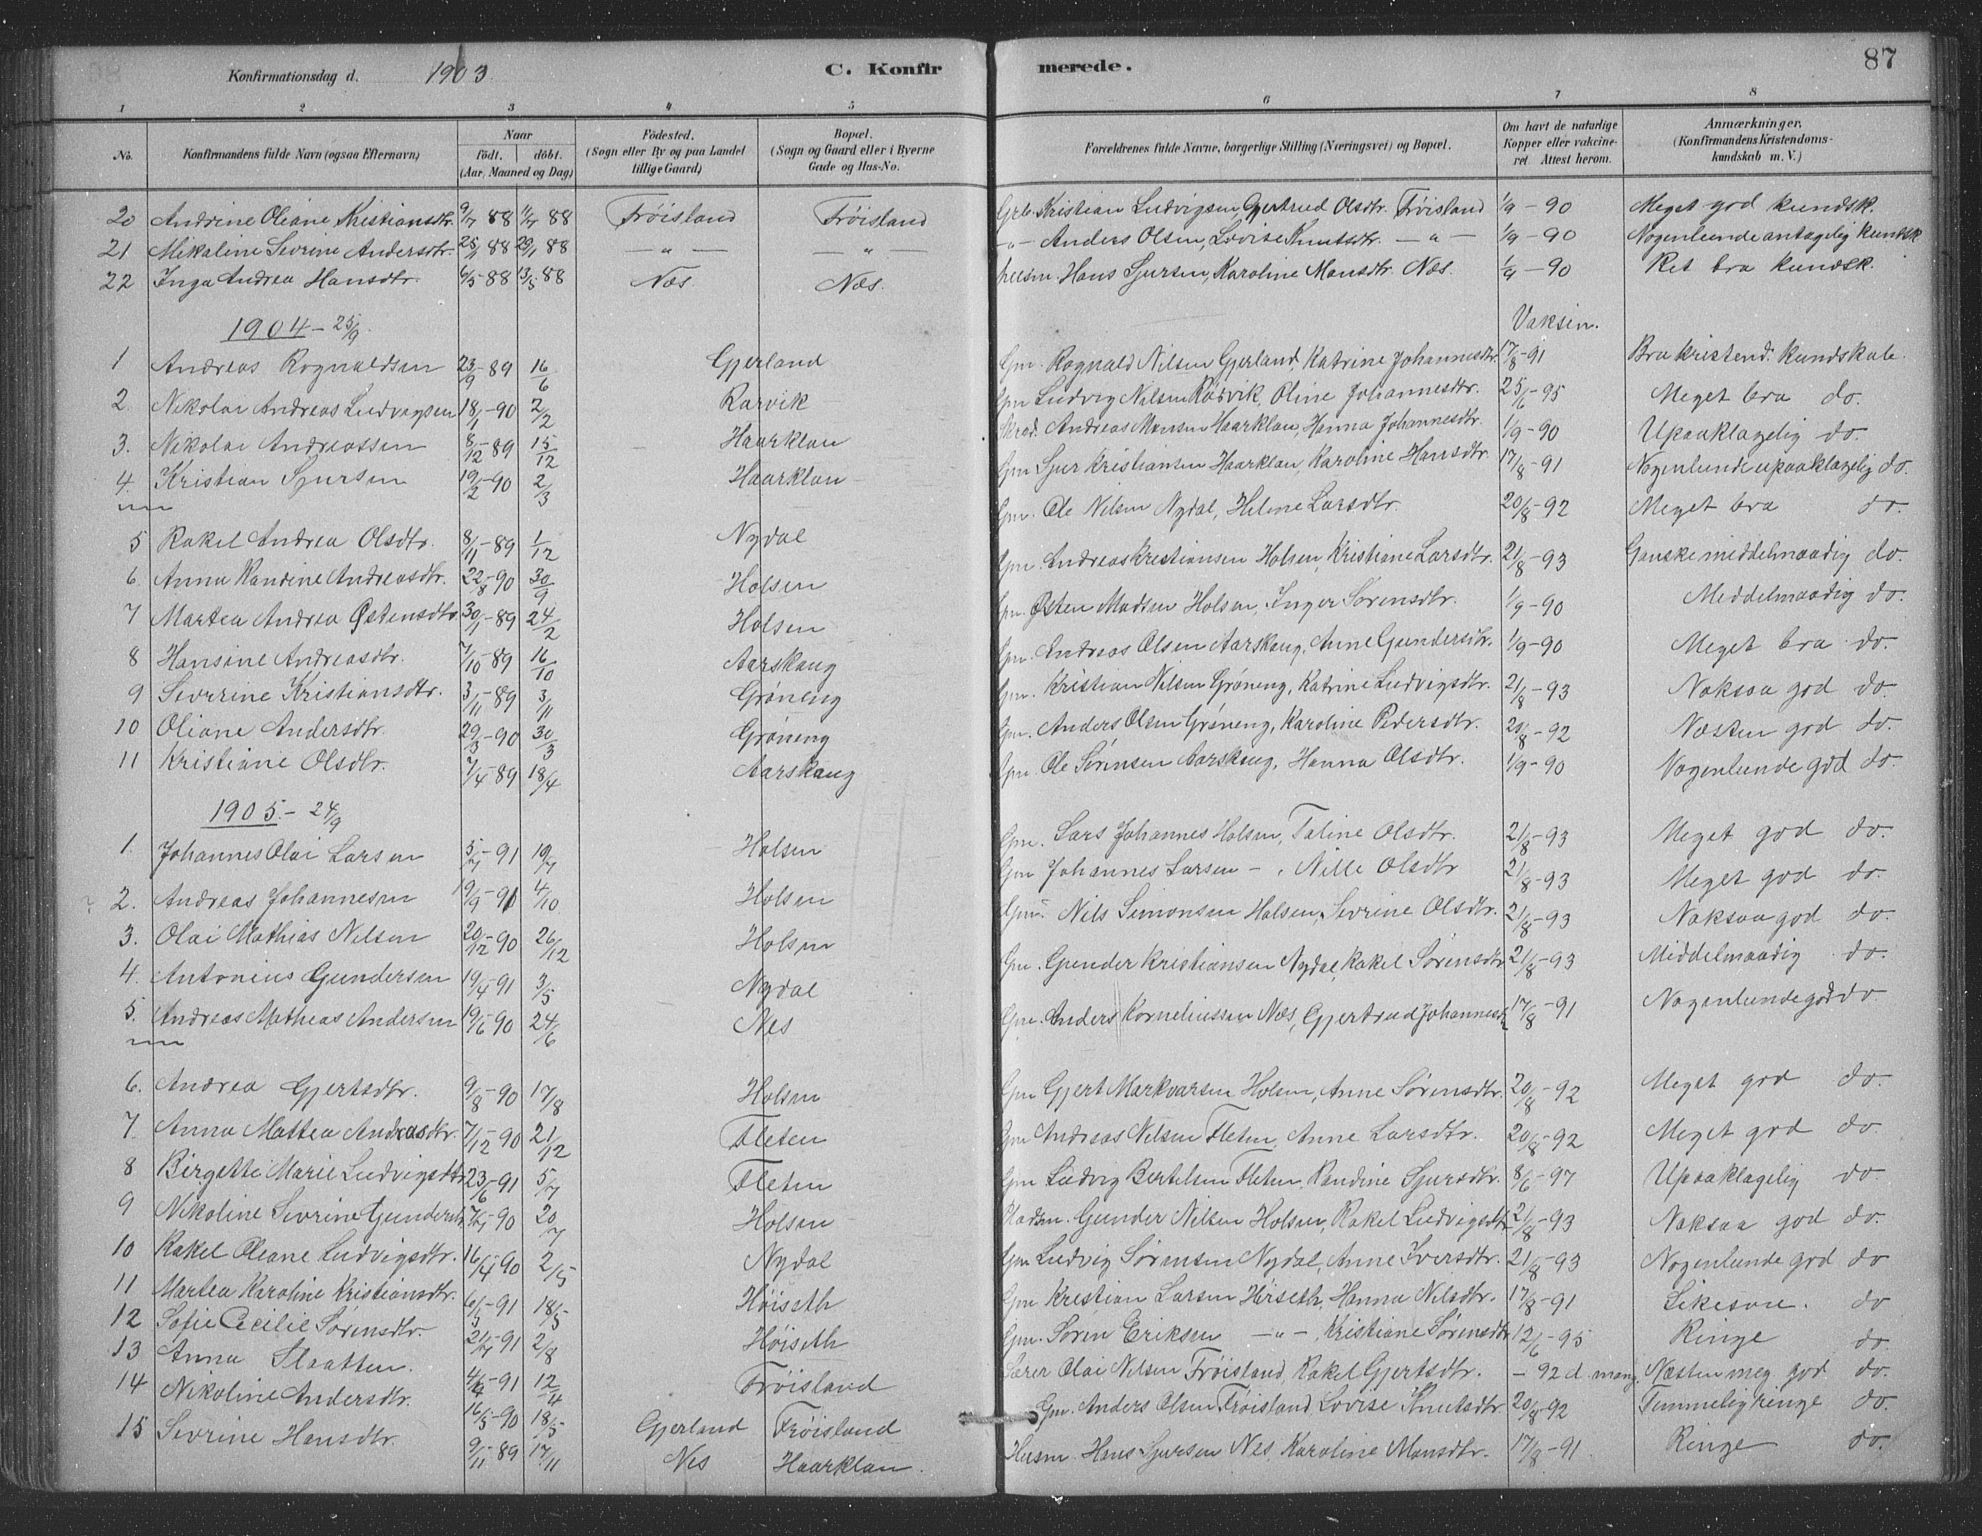 87
Konfirmationsdag d. 1903. C. Konfirmerede.
1 2 3 4 5 6 7 8
No. Konfirmandens fulde Navn (ogsaa Efternavn) Naar født. døbt. (Aar, Maaned og Dag) Födested. (Sogn eller By og paa Landet tillige Gaard) Bopæl. (Sogn og Gaard eller i Byerne Gade og Hus-No. Forældrenes fulde Navne, borgerlige Stilling (Næringsvei) og Bopæl. Om havt de naturlige Kopper eller vakcineret. Attest herom. Anmærkninger. (Konfirmandens Kristendomskundskab m. V.)
20 Andrine Oliane Kristiansdtr. 9/7 88 11/7 88 Frøisland Frøisland Grb. Kristian Ludvigsen, Gjertrud Olsdtr. Frøisland 1/9 - 90 Meget god kundsk.
21 Mikaline Sevrine Andersdtr. 25/1 88 29/1 88 — " — — " — " - Anders Olsen, Lovise Knutsdtr. — " — 1/9 - 90 Nogenlunde antagelig kundsk
22 Inga Andrea Hansdtr. 6/5 88 13/5 88 Næs. Næs. Hans Sjursen, Karoline Monsdtr. Næs. 1/9 - 90 Ret bra kundsk.
1904 - 25/9. Vaksin.
1 Andreas Rognaldsen 23/9 - 89 16/6 Gjerland Gm. Rognald Nilsen Gjerland, Katrine Johannesdtr. 17/8 - 91 Bra kristend. kundskab.
2. Nikolai Andreas Ludvigsen 18/1 - 90 2/2 Rørvik Gm Ludvig Nilsen Rørvik, Oline Johannesdtr. 25/6 - 95 Meget bra do.
3. Nikolai Andreassen 8/12 - 89 15/12 Haarklau Skræd. Andreas Monsen Haarklau, Hanna Johannesdtr. 1/9 - 90 Upaaklagelig do.
4. Kristian Sjursen 19/2 - 90 2/3 Haarklau Gm Sjur Kristiansen Haarklau, Karoline Hansdtr. 17/8 - 91 Nogenlunde upaaklagelig do.
5 Rakel Andrea Olsdtr. 8/11 - 89 1/12 Nydal Gm. Ole Nilsen Nydal, Heline Larsdtr. 20/8 - 92 Meget bra do.
6. Anna Randine Andreasdtr. 22/8 - 90 30/9 Holsen Gm. Andreas Kristiansen Holsen, Kristiane Larsdtr. 21/8 - 93 Ganske middelmaadig do.
7 Martea Andrea Østensdtr. 30/1 - 89 24/2 Holsen Gm. Østen Madsen Holsen, Inger Sørensdtr. 1/9 - 90 Middelmaadig do.
8 Hansine Andreasdtr. 7/10 - 89 16/10 Aarskaug Gm. Andreas Olsen Aarskaug, Anne Gundersdtr. 1/9 - 90 Meget bra do.
9 Sevrine Kristiansdtr. 3/11 - 89 3/11 Grøneng Gm. Kristian Nilsen Grøneng, Katrine Ludvigsdtr. 21/8 - 93 Noksaa god do.
10 Oliane Andersdtr. 29/3 - 90 30/3 Grøneng Gm. Anders Olsen Grøneng, Karoline Pedersdtr. 20/8 - 92 Næsten god do.
11 Kristiane Olsdtr. 7/4 - 89 18/4 Aarskaug Gm. Ole Sørensen Aarskaug, Hanna Olsdtr. 1/9 - 90 Nogenlunde god do.
1905. - 24/9
1. Johannes Olai Larsen 5/7 - 91 19/7 Holsen Gm. Lars Johannes Holsen, Taline Olsdtr. 21/8 - 93 Meget god do.
2. Andreas Johannesen 19/9 - 91 4/10 Holsen Gm Johannes Larsen - , Nille Olsdtr 21/8 - 93 Meget god do.
3. Olai Mathias Nilsen 20/12 - 90 26/12 Holsen Gm. Nils Simonsen Holsen, Sevrine Olsdtr. 21/8 - 93 Noksaa god do.
4. Antonius Gundersen 19/4 - 91 3/5 Nydal Gm. Gunder Kristiansen Nydal, Rakel Sørensdtr 21/8 - 93 Middelmaadig do.
5. Andreas Mathias Andersen 19/6 90 24/6 Nes Gm. Anders Korneliussen Næs, Gjertrud Johannesdtr 17/8 - 91 Nogenlunde god do
6. Andrea Gjertsdtr. 9/8 - 90 17/8 Holsen Gm Gjert Markvarsen Holsen, Anne Sørensdtr. 20/8 - 92 Meget god do.
7. Anna Mattea Andreasdtr. 7/12 - 90 21/12 Fleten Gm Andreas Nilsen Fleten, Anne Larsdtr. 20/8 - 92 Meget god do.
8 Birgette Marie Ludvigsdtr 23/6 - 91 5/7 Fleten Gm Ludvig Bertelsen Fleten, Randine Sjursdtr. 8/6 - 97 Upaaklagelig do
9 Nikoline Sevrine Gundersdtr - 90 20/7 Holsen Pladsm. Gunder Nilsen Holsen, Rakel Ludvigsdtr 21/8 - 93 Noksaa god do.
10 Rakel Oleane Ludvigsdtr. 16/4 90 2/5 Nydal Gm Ludvig Sørensen Nydal, Anne Iversdtr. 21/8 - 93 Nogenlunde god do
11 Martea Karoline Kristiansdtr. 6/5 - 91 18/5 Høiseth Gm Kristian Larsen Høiseth, Hanna Nilsdtr. 17/8 - 91 Likesaa. do
12 Sofie Cecilie Sørensdtr. 21/7 - 91 2/8 Høiseth Gm. Søren Eriksen — " —, Kristiane Sørensdtr 12/6 - 95 Ringe do.
13 Anna Slaatten. - 91 12/4 Frøisland Lærer Olai Nilsen Frøisland, Rakel Gjertsdtr. - 92 d. mang. Næsten meg god do.
14 Nikoline Andersdtr. 16/5 - 90 18/5 Gjerland Frøisland Gm. Anders Olsen Frøisland, Lovise Knutsdtr 20/8 - 92 Temmelig ringe do.
15 Sevrine Hansdtr. 9/11 - 89 17/11 Nes Haarklau. Husm. Hans Sjursen Nes, Karoline Monsdtr. 17/8 - 91 Ringe do.